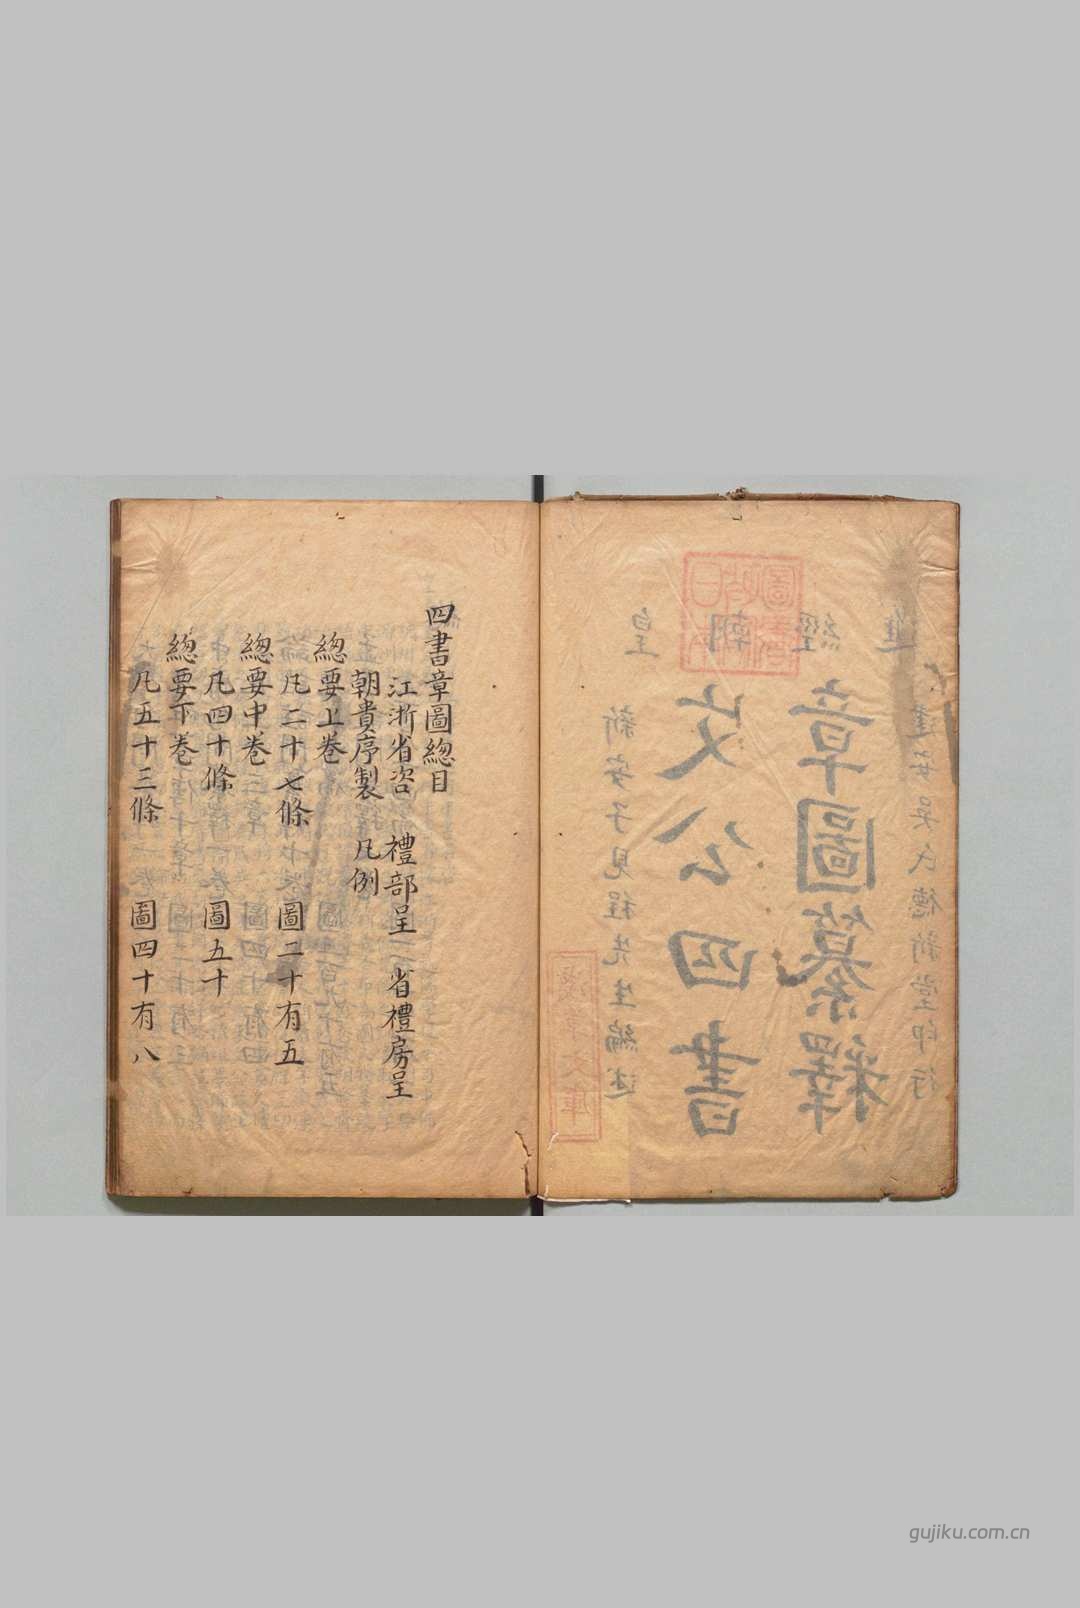 皇朝經進
新安子見程先生編述
文公四書
章圖纂釋
建安吳氏德新堂印行
四書章圖緫目
江浙省咨 禮部呈 省禮房呈
朝貴序製 凡例
緫要上卷
凡二十七條 圖二十有五
緫要中卷
凡四十條 圖五十
緫要下卷
凡五十三條 圖四十有八
gujiku.com.cn